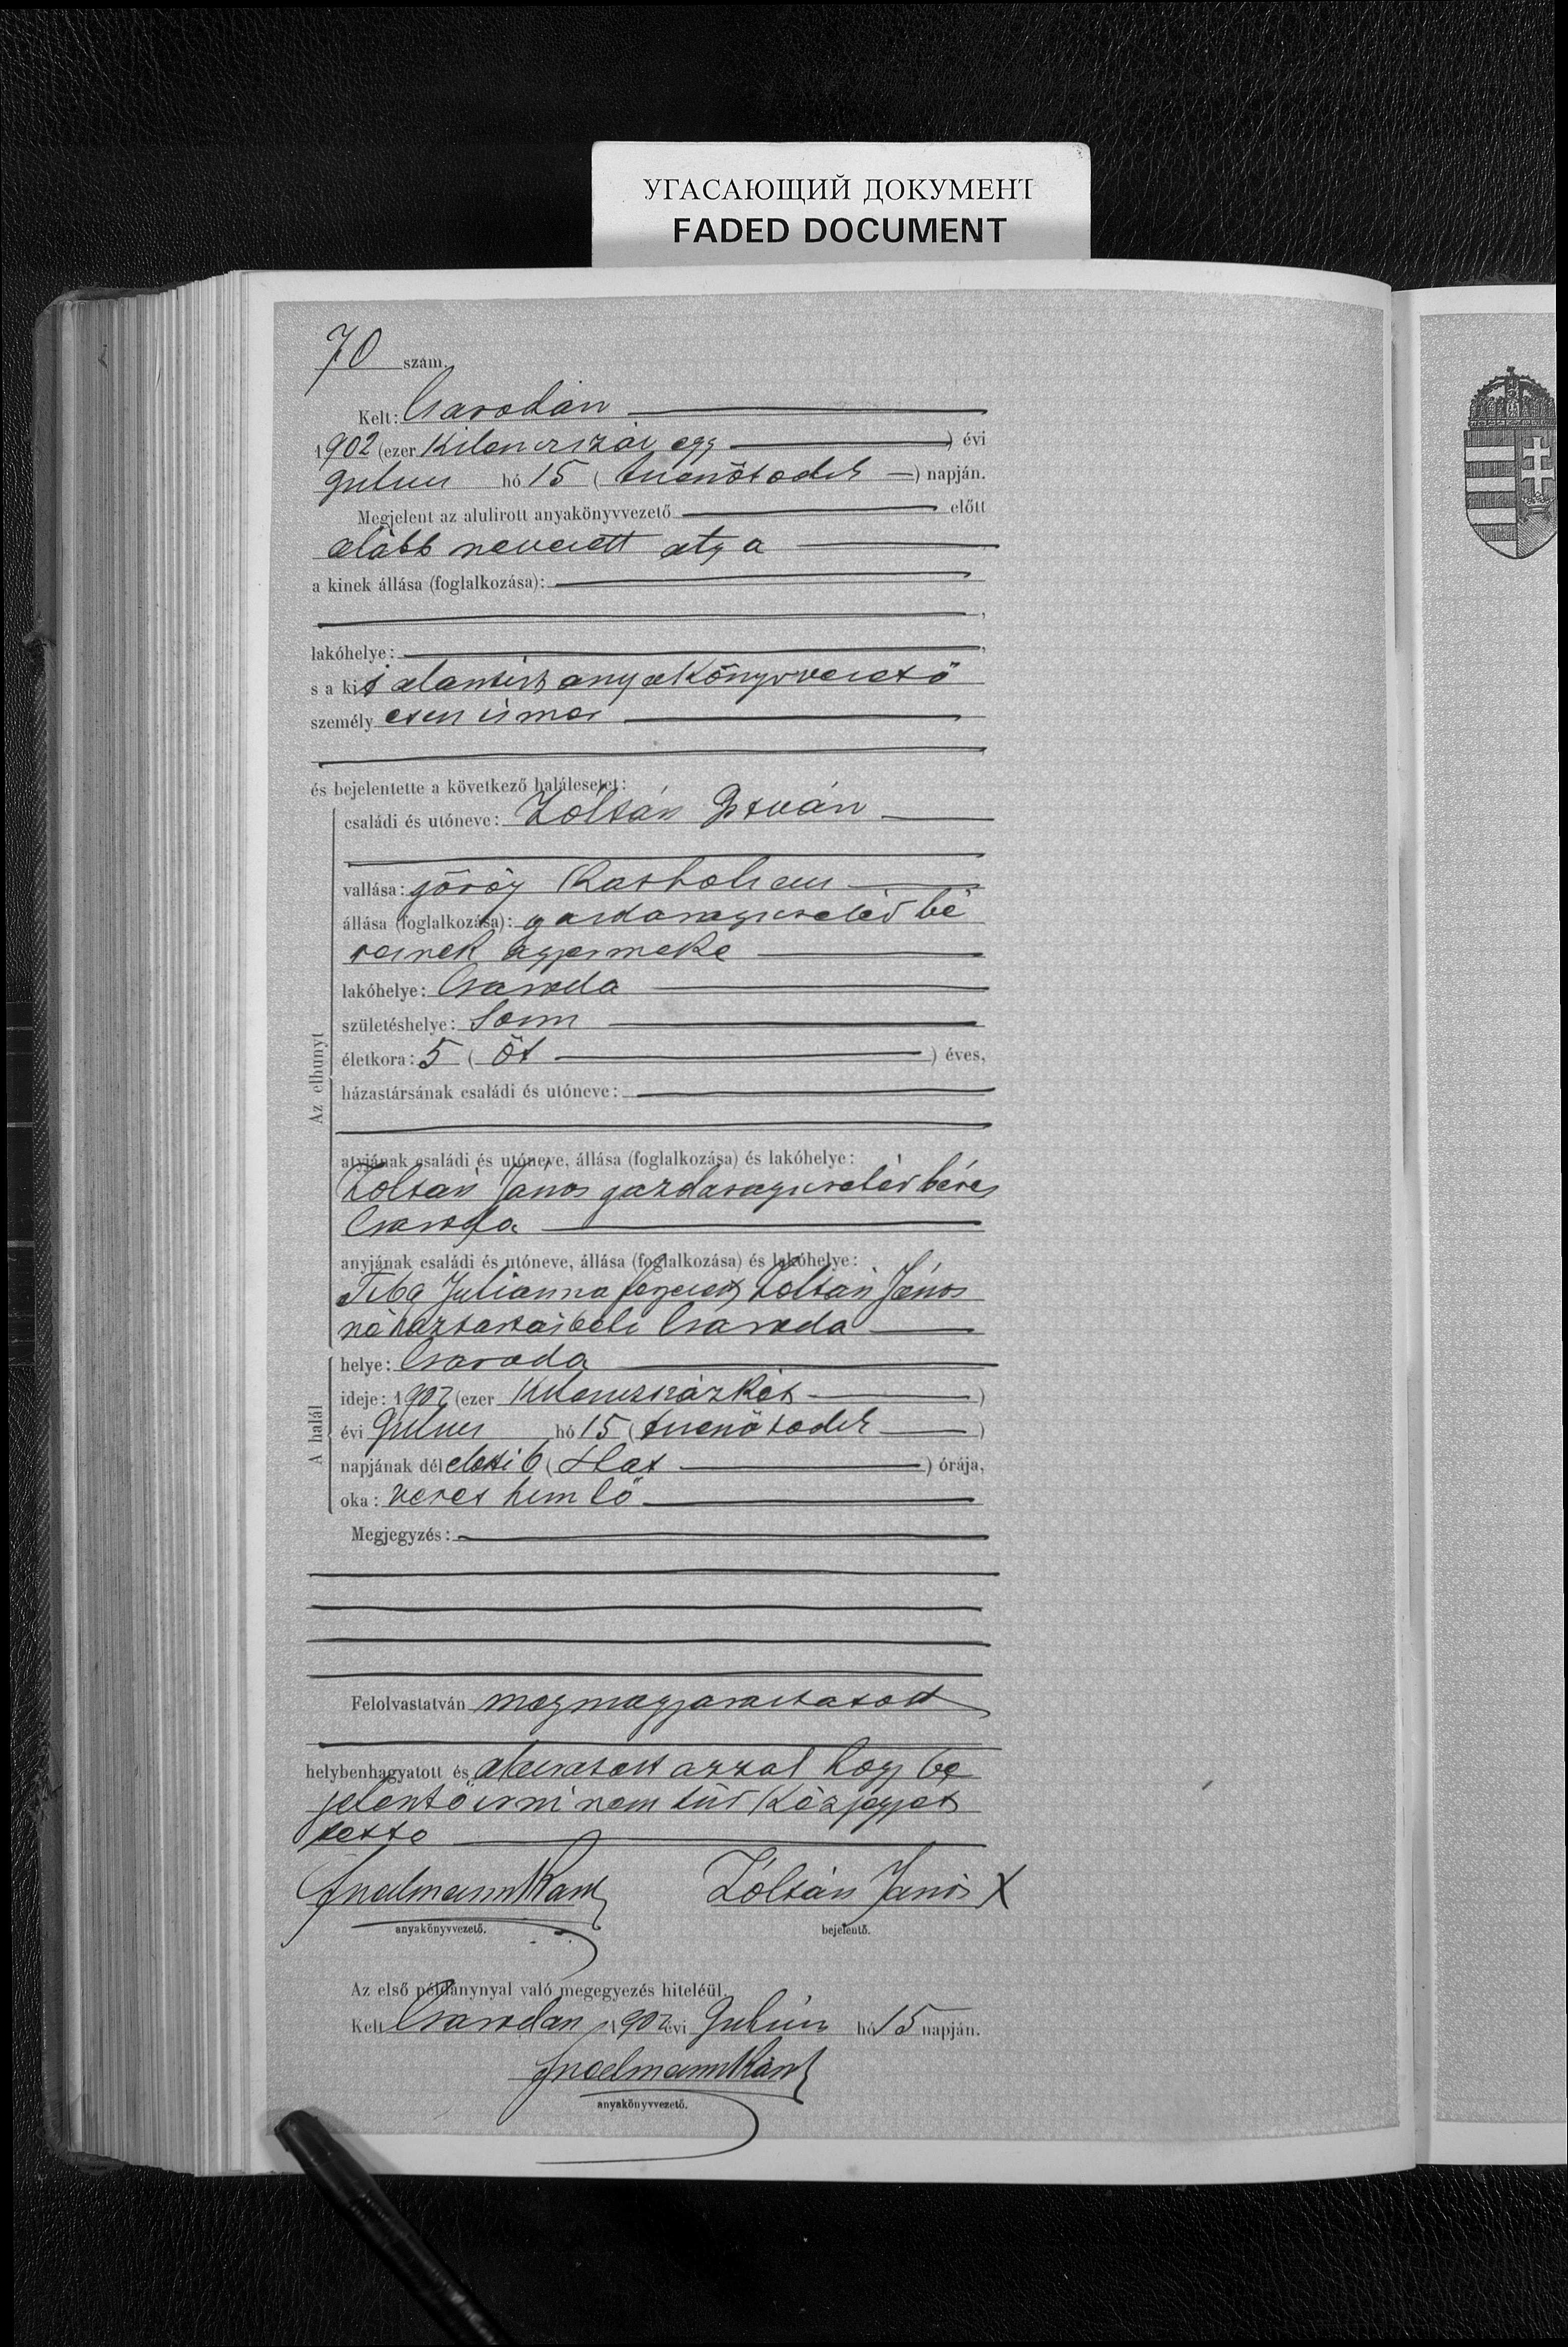 УГАСАЮЩИЙ ДОКУМЕНТ
FADED DOCUMENT
70 szám.
Kelt: Csarodán
1902 (ezer kilenczszáz egy ) évi
Julius hó 15 ( tizenötödik ) napján.
Megjelent az alulirott anyakönyvvezető előtt
alább nevezett atya
a kinek állása (foglalkozása):
lakóhelye:
s a kit alantirt anyakönyvvezető
személyesen ismer
és bejelentette a következő halálesetet:
Az elhunyt
családi és utóneve: Zoltán István
vallása: görög katholicus
állása (foglalkozása): gazdasagicseléd bé
resnek gyermeke
lakóhelye: Csaroda
születéshelye: Som
életkora: 5 ( öt ) éves,
házastársának családi és utóneve:
atyjának családi és utóneve, állása (foglalkozása) és lakóhelye:
Zoltán János gazdaságicseléd béres
Csaroda
anyjának családi és utóneve, állása (foglalkozása) és lakóhelye:
Tiba Julianna Zoltán János
né háztartásbeli Csaroda
A halál
helye: Csaroda
ideje: 1902 (ezer kilenczszázkét )
évi Julius hó 15 ( tizenötödik )
napjának délelőtti 6 ( Hat ) órája,
oka: veres himlő
Megjegyzés:
Felolvastatván megmagyaráztatott
helybenhagyatott és aláiratott azzal hogy be
jelentő irni nem tud kézjegyet
tette
anyakönyvvezető.
Zoltán János X
bejelentő.
Az első példánynyal való megegyezés hiteléül.
Kelt Csarodan 1902 évi Julius hó 15 napján.
anyakönyvvezető.